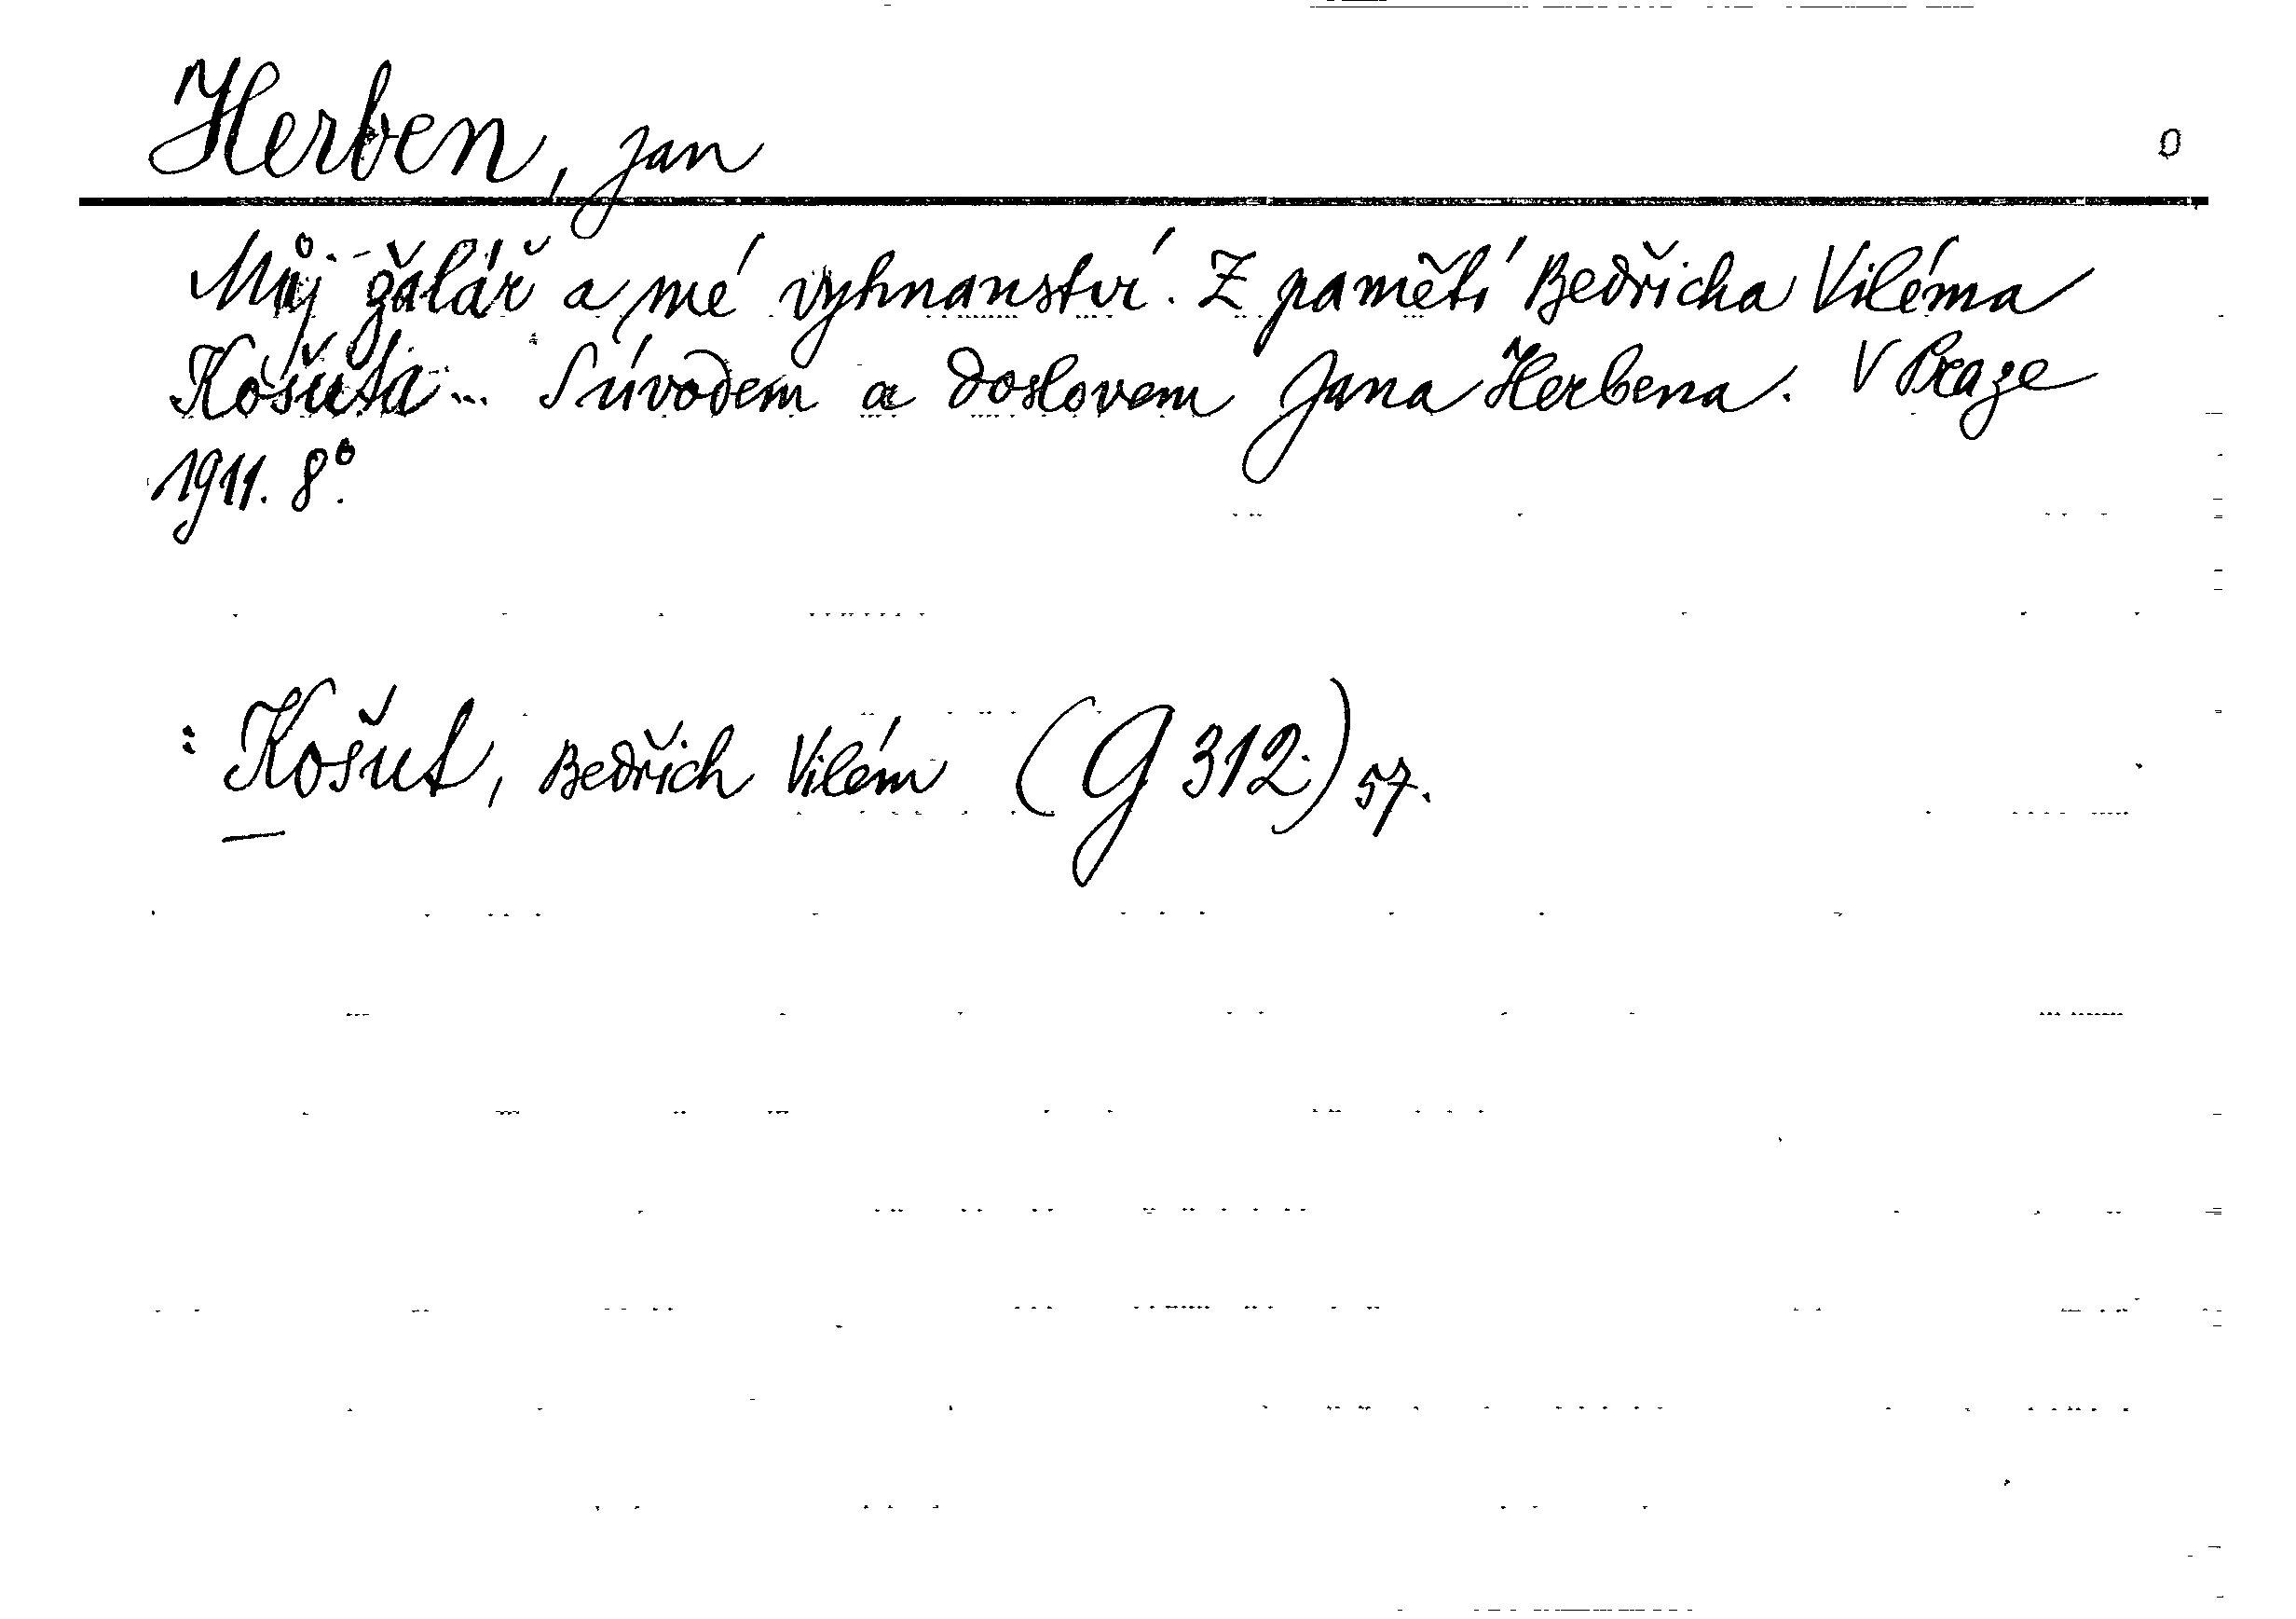 Herben, Jan
0
Můj žalář a mé vyhnanství. Z pamětí Bedřicha Viléma
Košuta... S úvodem a doslovem Jana Herbena. V Praze
1911. 8°.
: Košut, Bedřich Vilém (G 312.) 57.